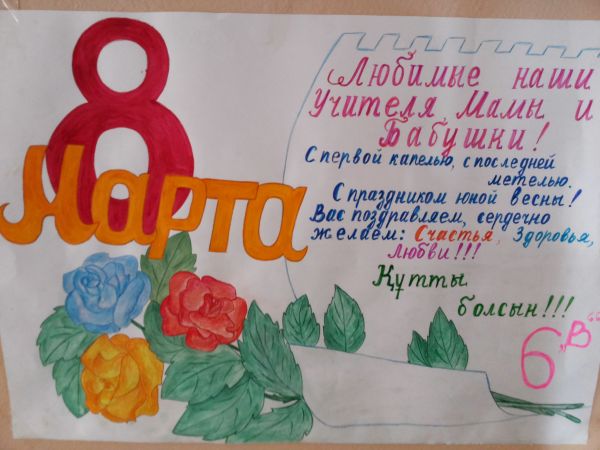 8
Марта
Любимые наши
Учителя, Мамы и
Бабушки!
С первой капелью, с последней
метелью.
С праздником юной весны!
Вас поздравляем, сердечно
желаем: Счастья, Здоровья,
Любви!!!
Құтты
болсын!!!
6 „В“